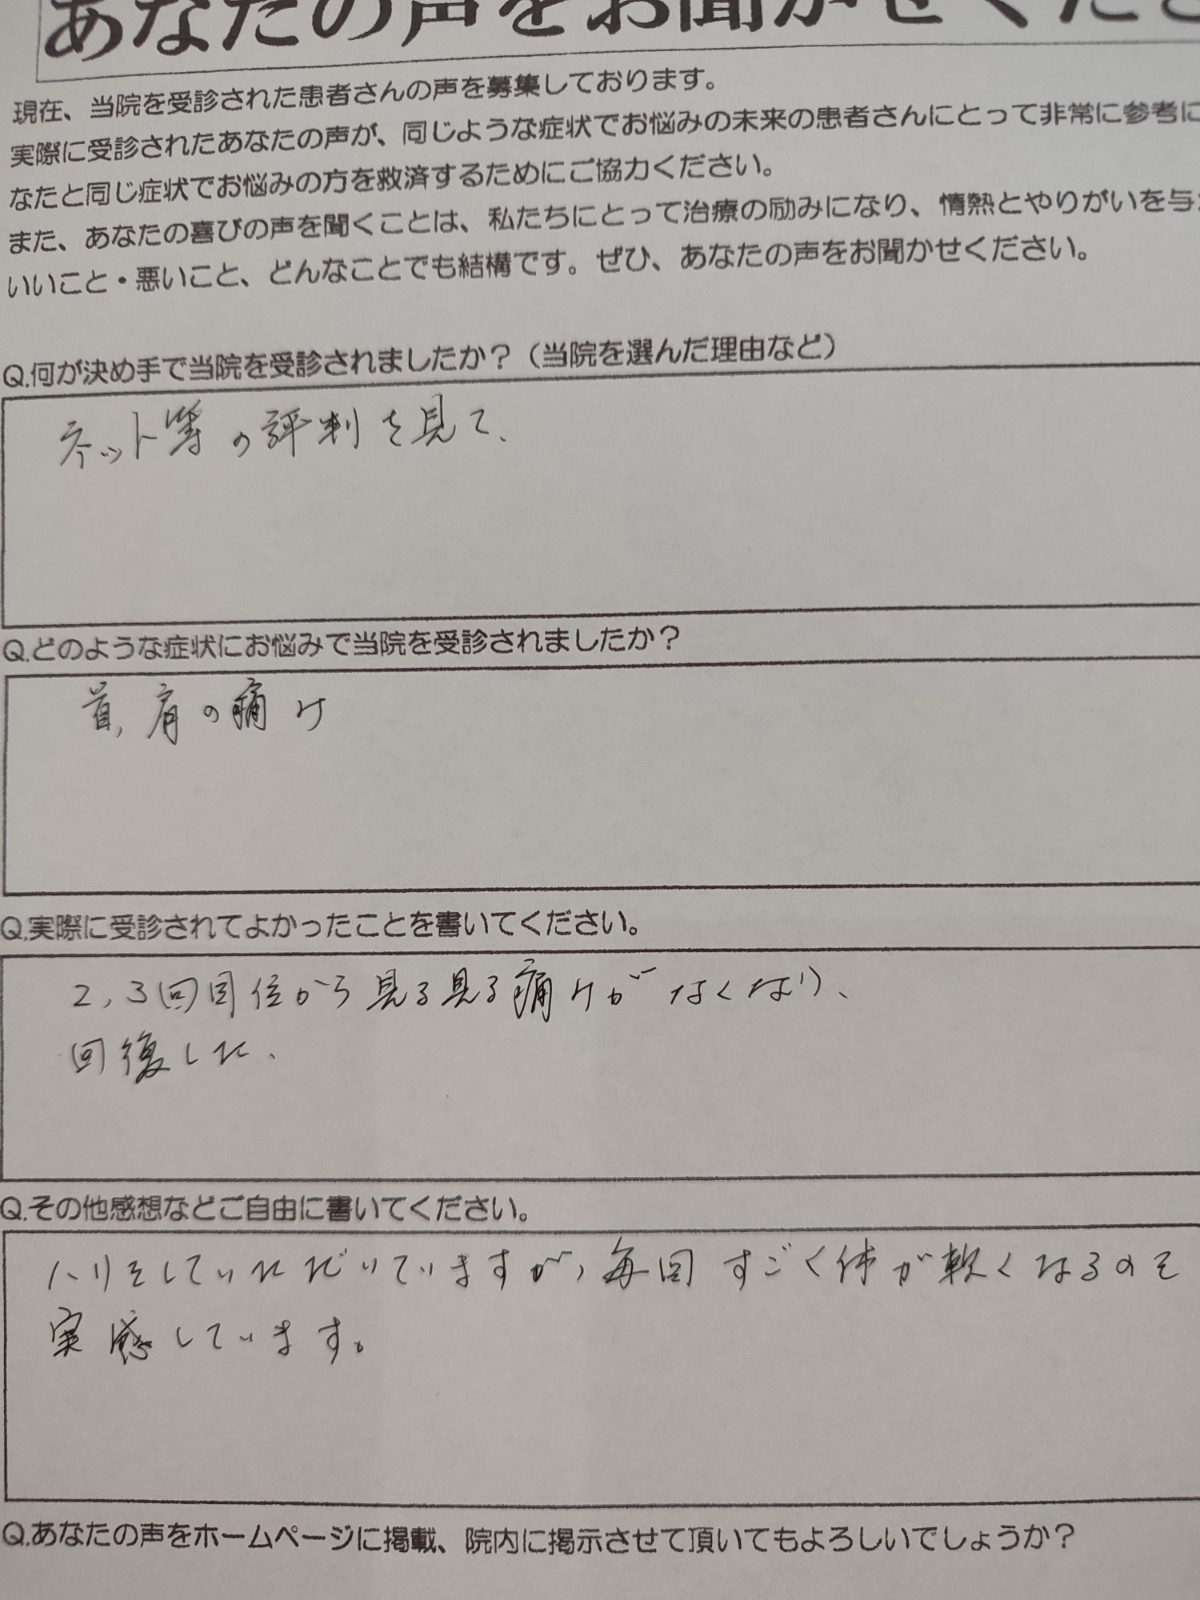 あなたの声をお聞かせくださ
現在、当院を受診された患者さんの声を募集しております。
実際に受診されたあなたの声が、同じような症状でお悩みの未来の患者さんにとって非常に参考に
なたと同じ症状でお悩みの方を救済するためにご協力ください。
また、あなたの喜びの声を聞くことは、私たちにとって治療の励みになり、情熱とやりがいを与
いいこと・悪いこと、どんなことでも結構です。ぜひ、あなたの声をお聞かせください。
Q.何が決め手で当院を受診されましたか?(当院を選んだ理由など)
ネット等の評判を見て、
Q.どのような症状にお悩みで当院を受診されましたか?
首、肩の痛み
Q.実際に受診されてよかったことを書いてください。
2,3回目位から見る見る痛みがなくなり、
回復した、
Q.その他感想などご自由に書いてください。
ハリをしていただいていますが、毎回すごく体が軟くなるのを
実感しています。
Q.あなたの声をホームページに掲載、院内に掲示させて頂いてもよろしいでしょうか?